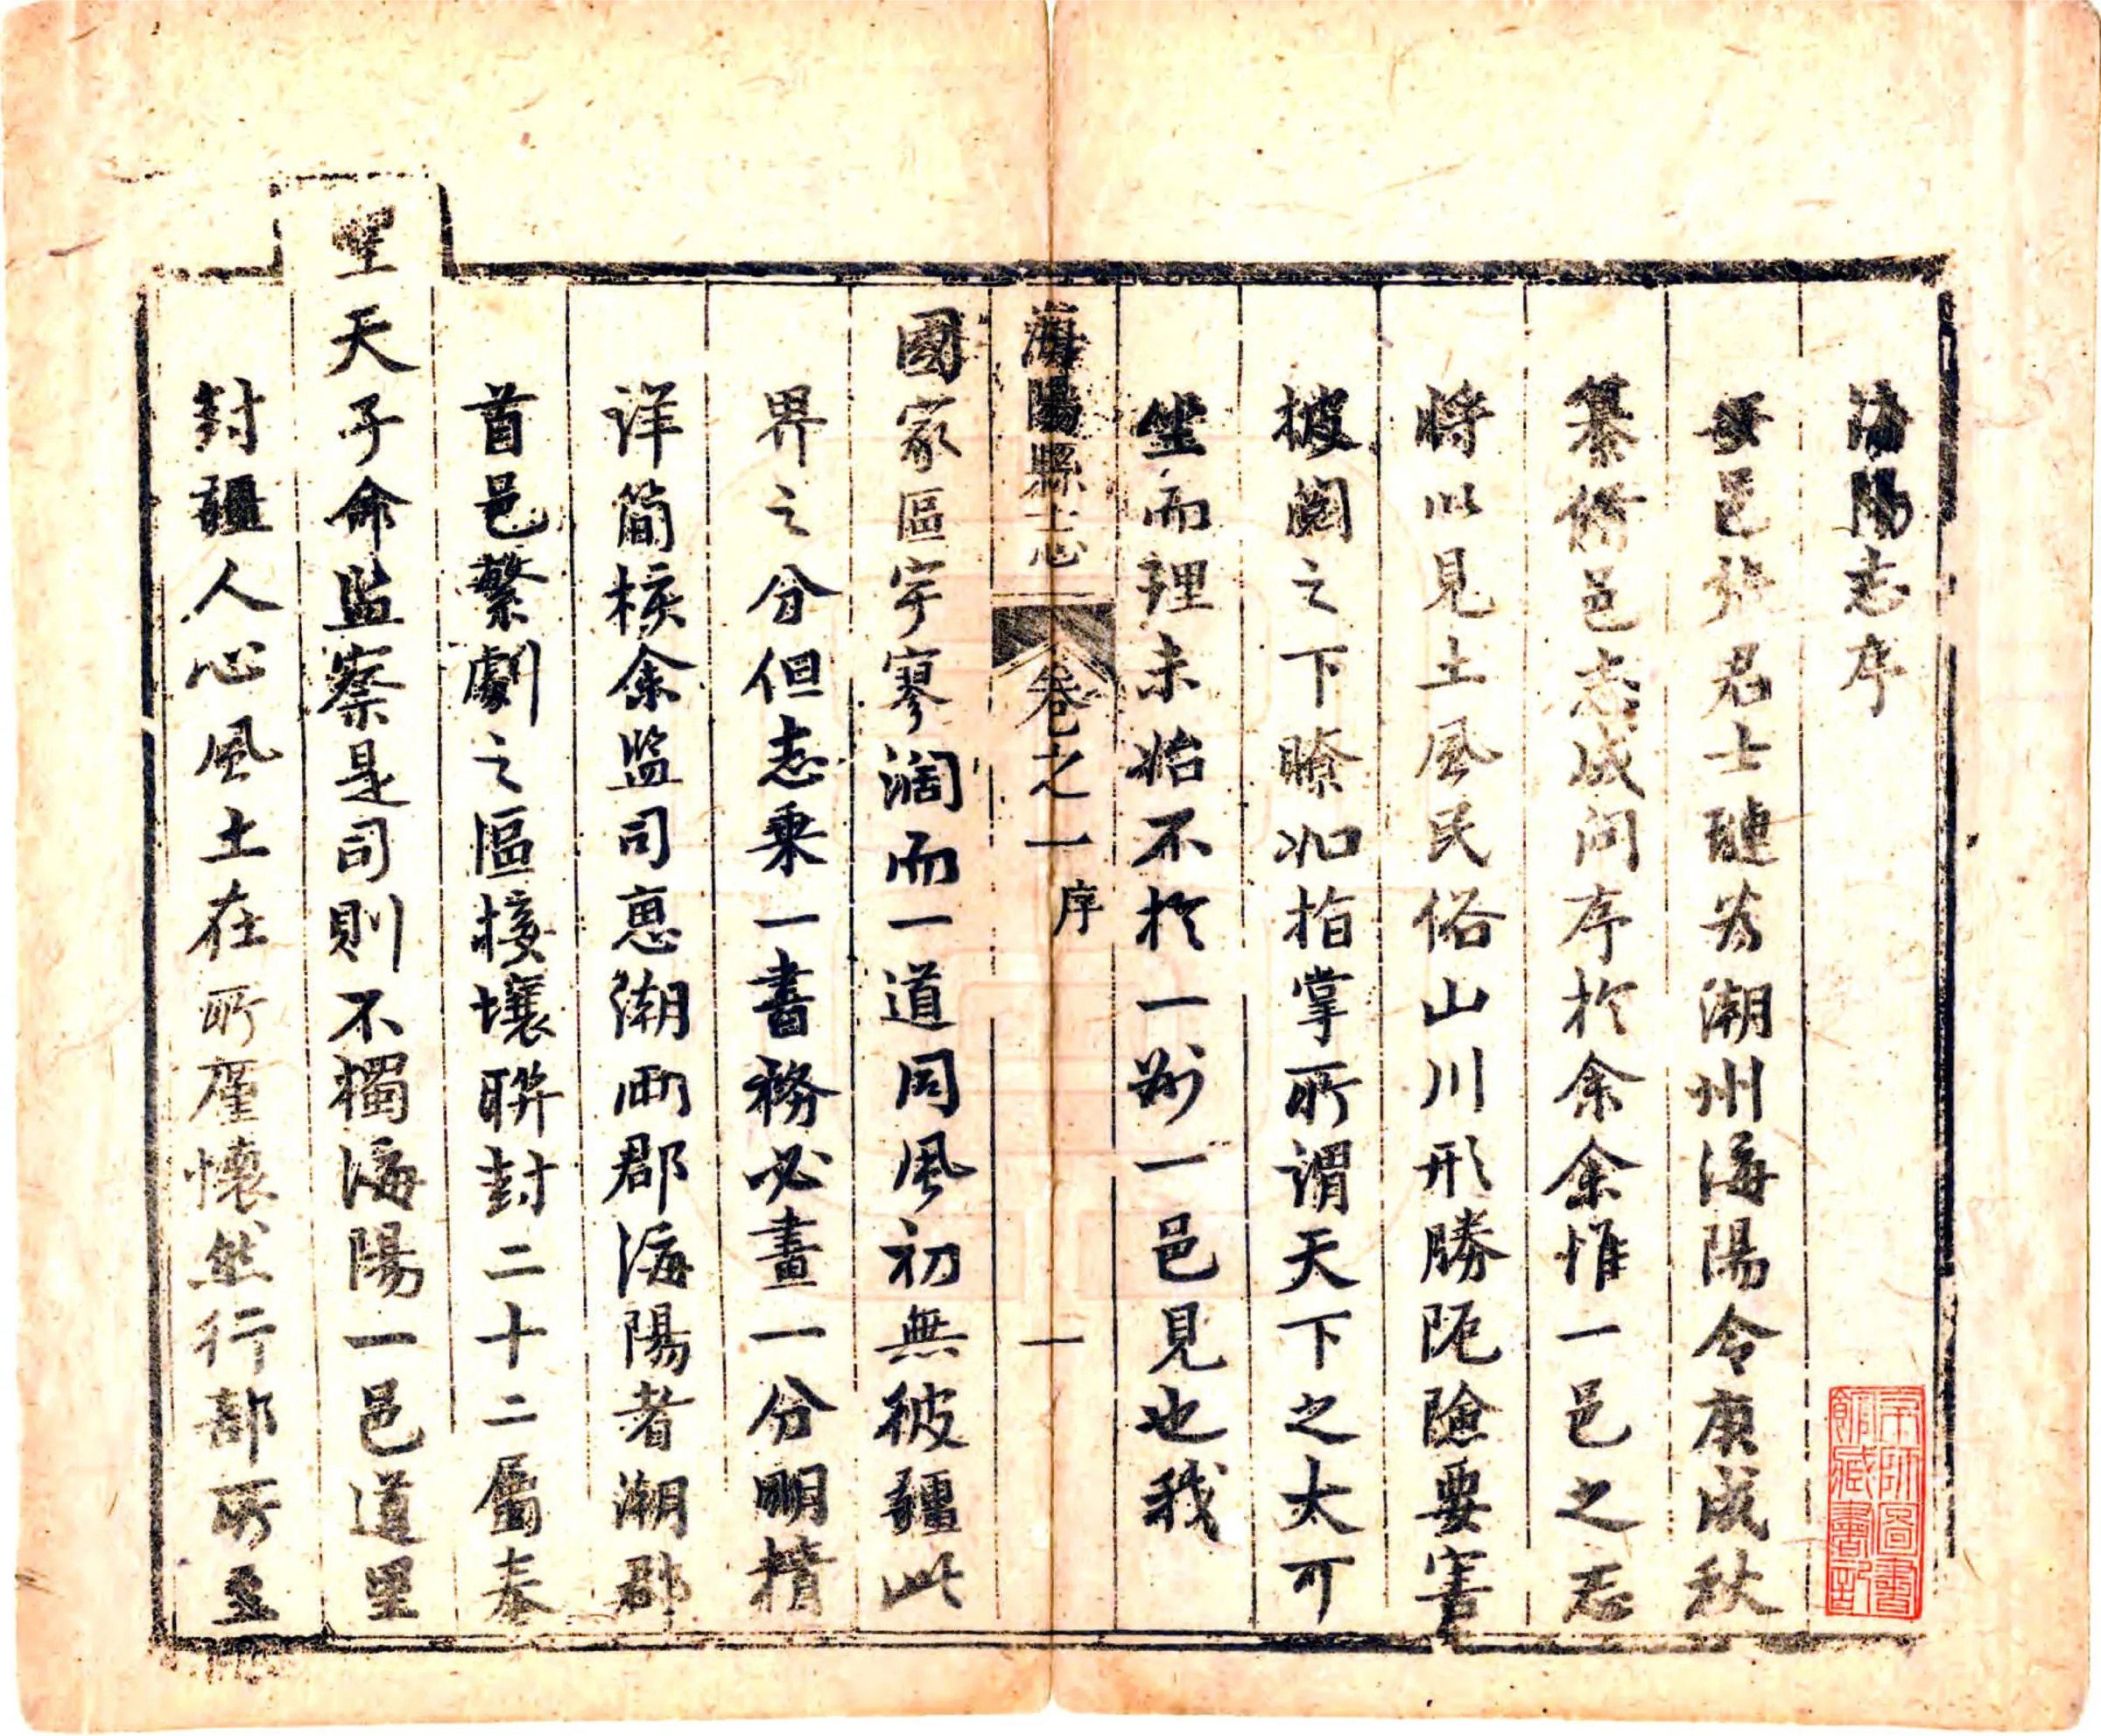 海陽志序
邑張君士璉為潮州海陽令庚戌秋
纂修邑志成問序於余余惟一邑之志
將以見土風民俗山川形勝阨險要害
披閱之下瞭如指掌所謂天下之大可
坐而理未始不於一郡一邑見也我
海陽縣志 卷之一 序 一
國家區宇寥濶而一道同風初無彼疆此
界之分但志乗一書務必畫一分明精
详簡核余监司惠潮两郡海陽者潮郡
首邑繁劇之區接壤聮封二十二屬奉
聖天子命監察是司則不獨海陽一邑道里
封疆人心風土在所廑懷然行部所至
宗師圖書館臧書印